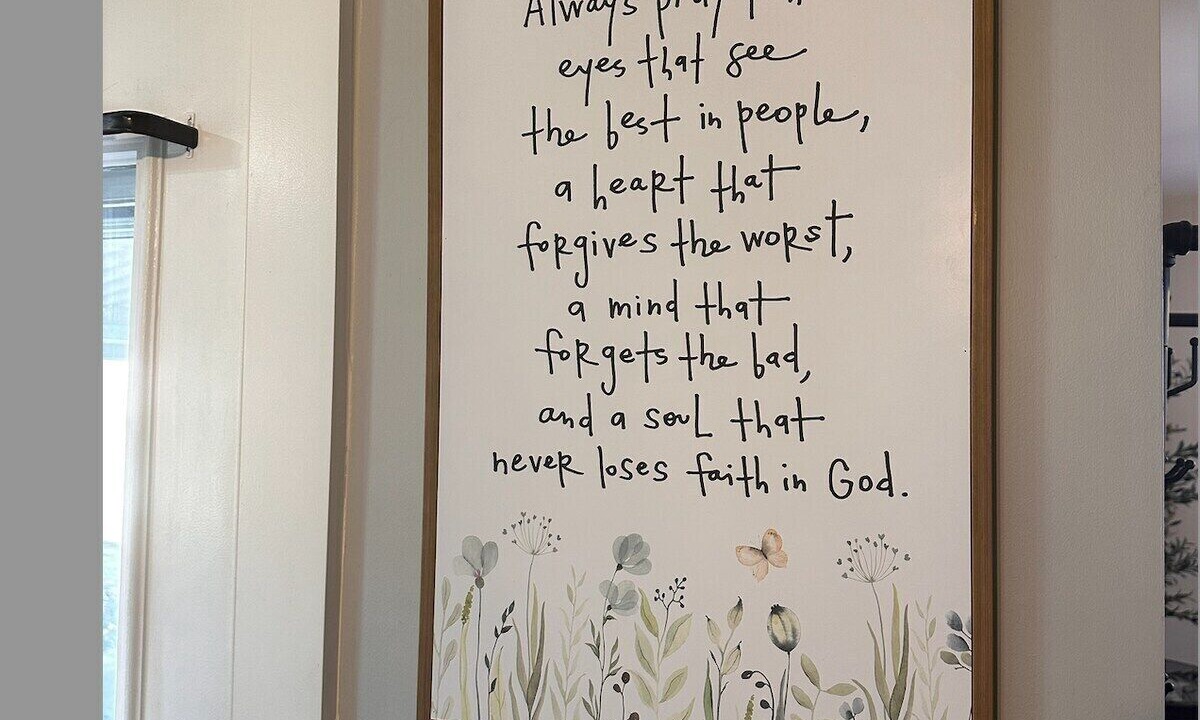 Always pray for
eyes that see
the best in people,
a heart that
forgives the worst,
a mind that
forgets the bad,
and a soul that
never loses faith in God.